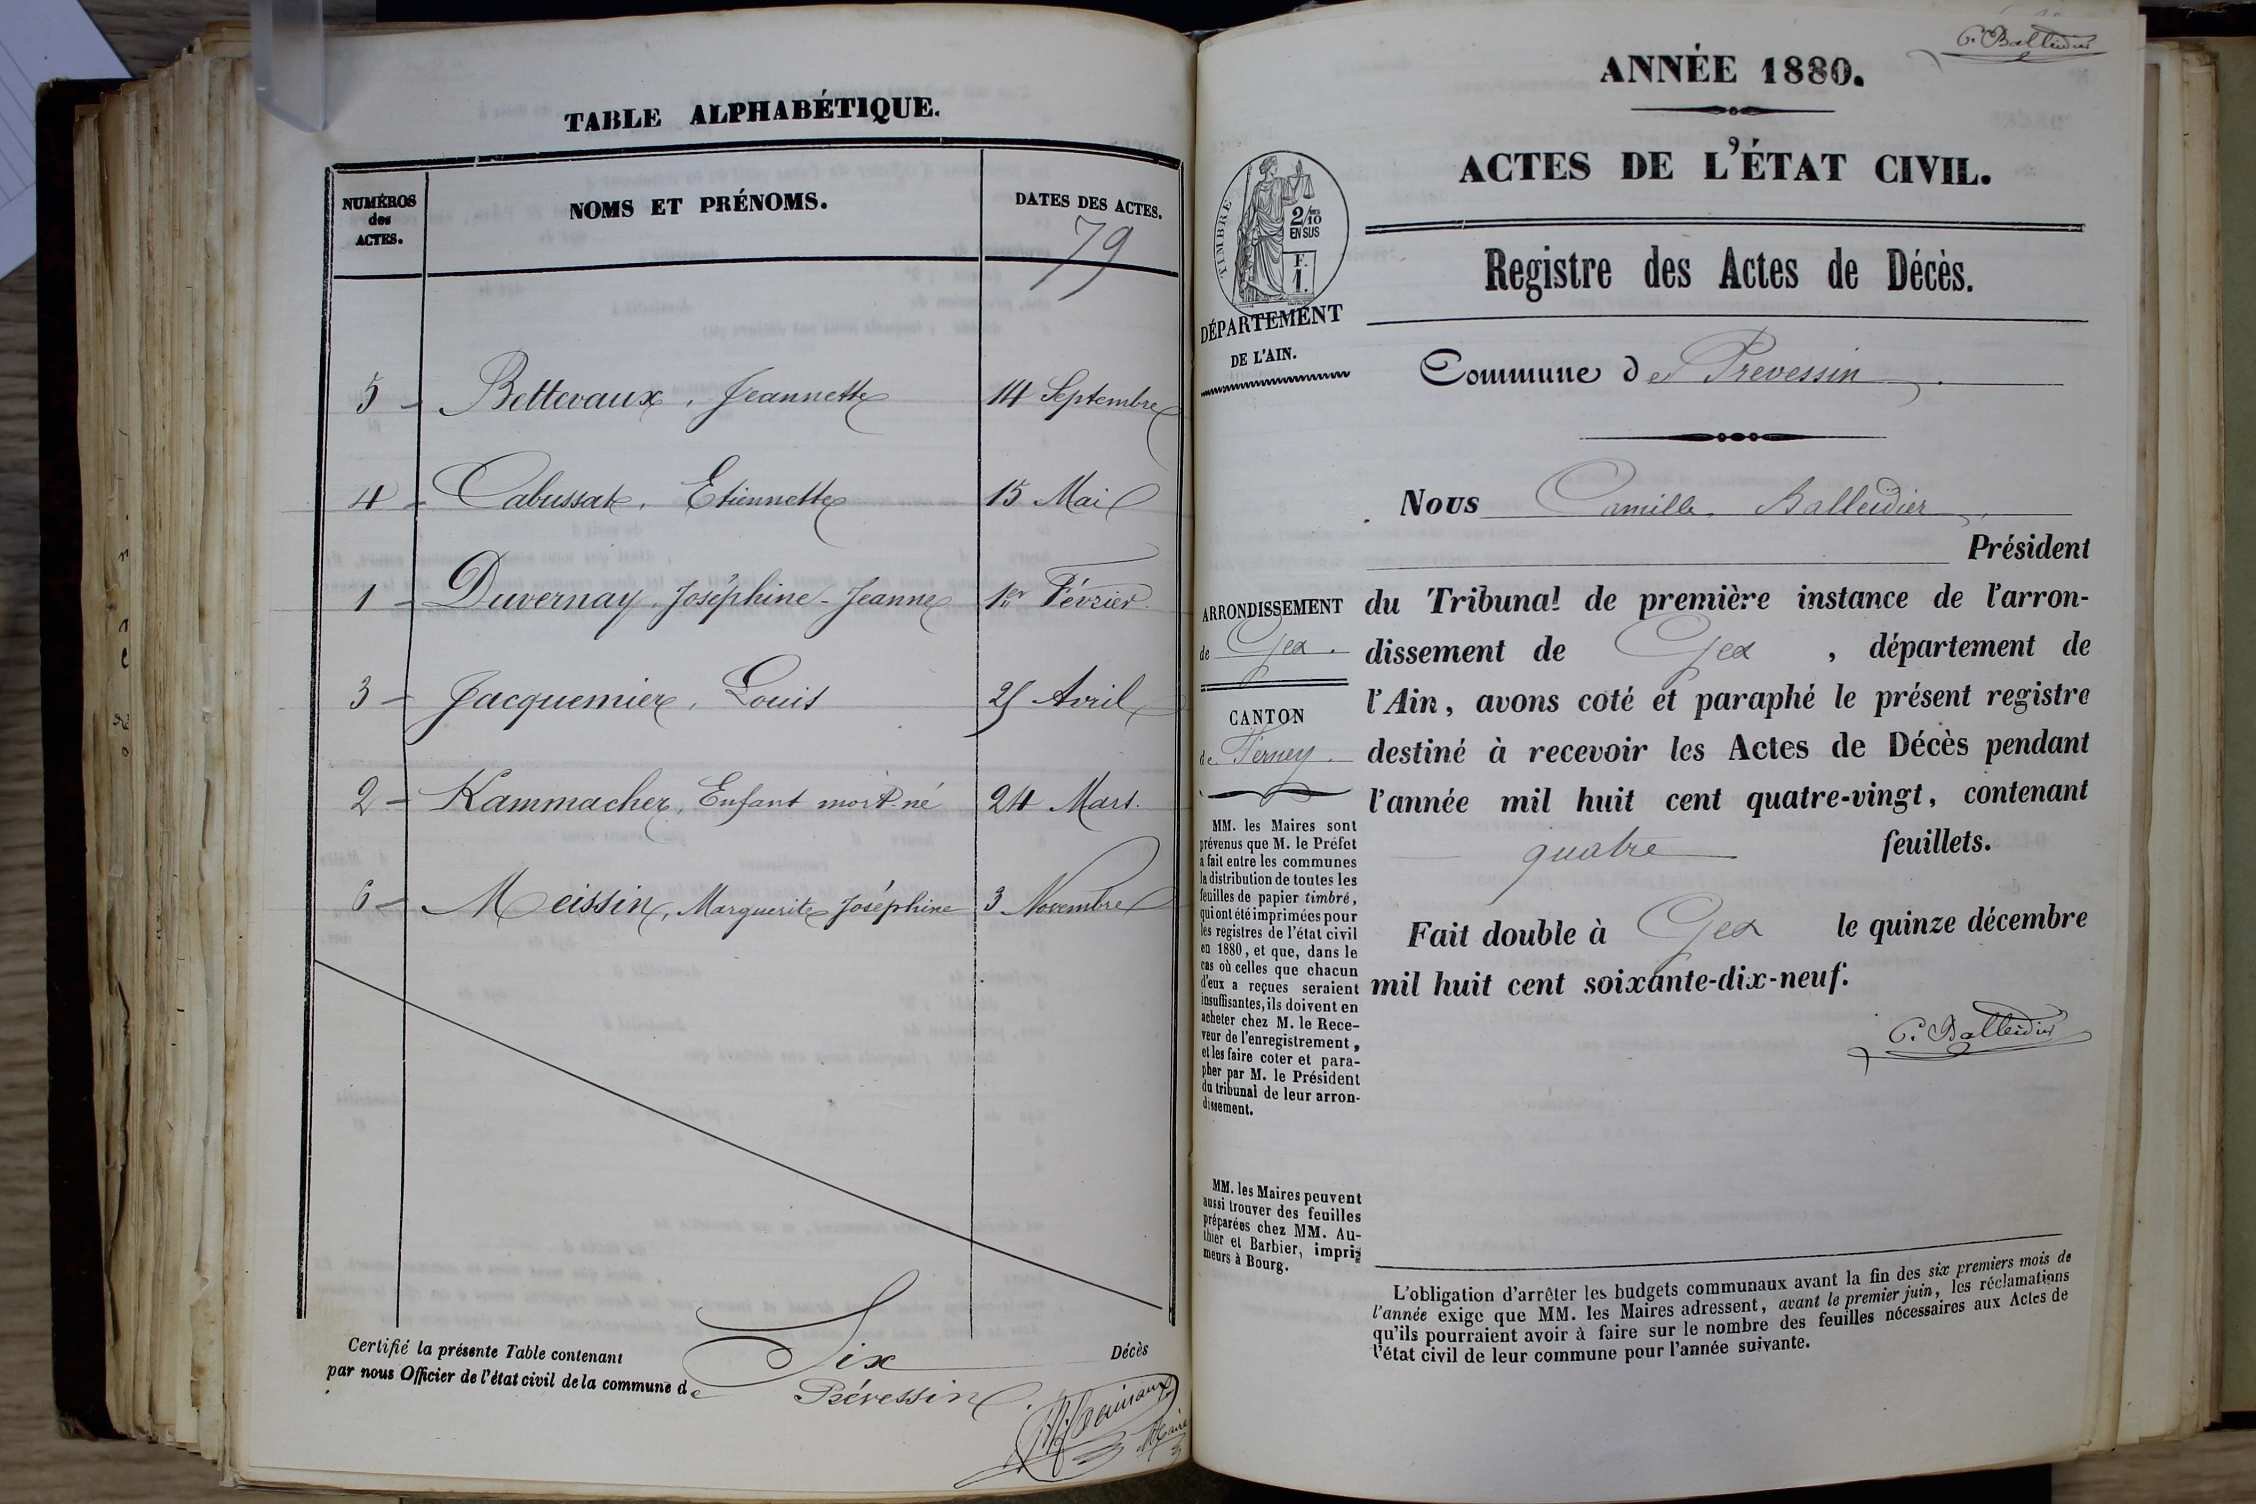 TABLE ALPHABÉTIQUE.
NUMÉROS
des
ACTES.
NOMS ET PRÉNOMS.
DATES DES ACTES.
79
5 - Bettevaux, Jeannette 14 Septembre
4 - Cabussat, Etiennette 15 Mai
1 - Duvernay, Joséphine-Jeanne 1er Février
3 - Jacquemier, Louis 25 Avril
2 - Kammacher, Enfant mort né 24 Mars.
6 - Meissin, Marguerite Joséphine 3 Novembre
Certifié la présente Table contenant Six Décès
par nous Officier de l'état civil de la commune de Prévessin.
Maire
C. Balleidier
ANNÉE 1880.
ACTES DE L'ÉTAT CIVIL.
TIMBRE
2/10
EN SUS
F.
1.
Registre des Actes de Décès.
DÉPARTEMENT
DE L'AIN.
Commune de Prevessin.
Nous Camille Balleidier,
Président
du Tribunal de première instance de l'arron-
dissement de Gex, département de
l'Ain, avons coté et paraphé le présent registre
destiné à recevoir les Actes de Décès pendant
l'année mil huit cent quatre-vingt, contenant
quatre feuillets.
Fait double à Gex le quinze décembre
mil huit cent soixante-dix-neuf.
C. Balleidier
ARRONDISSEMENT
de Gex.
CANTON
de Ferney.
MM. les Maires sont
prévenus que M. le Préfet
a fait entre les communes
la distribution de toutes les
feuilles de papier timbré,
qui ont été imprimées pour
les registres de l'état civil
en 1880, et que, dans le
cas où celles que chacun
d'eux a reçues seraient
insuffisantes, ils doivent en
acheter chez M. le Rece-
veur de l'enregistrement,
et les faire coter et para-
pher par M. le Président
du tribunal de leur arron-
dissement.
MM. les Maires peuvent
aussi trouver des feuilles
préparées chez MM. Au-
thier et Barbier, impri-
meurs à Bourg.
L'obligation d'arrêter les budgets communaux avant la fin des six premiers mois de
l'année exige que MM. les Maires adressent, avant le premier juin, les réclamations
qu'ils pourraient avoir à faire sur le nombre des feuilles nécessaires aux Actes de
l'état civil de leur commune pour l'année suivante.